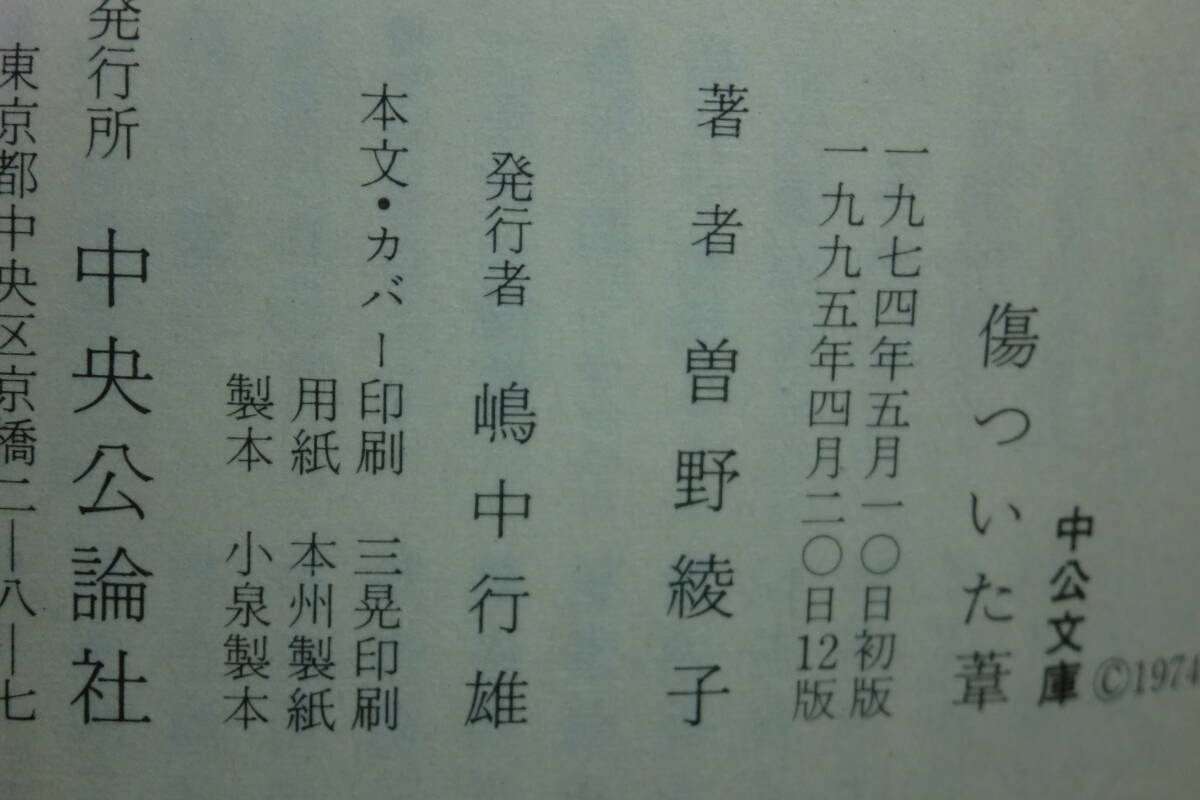 中公文庫
©1974
傷ついた葦
一九七四年五月一〇日初版
一九九五年四月二〇日12版
著者 曽野綾子
発行者 嶋中行雄
本文・カバー印刷 三晃印刷
用紙 本州製紙
製本 小泉製本
発行所 中央公論社
東京都中央区京橋二―八―七